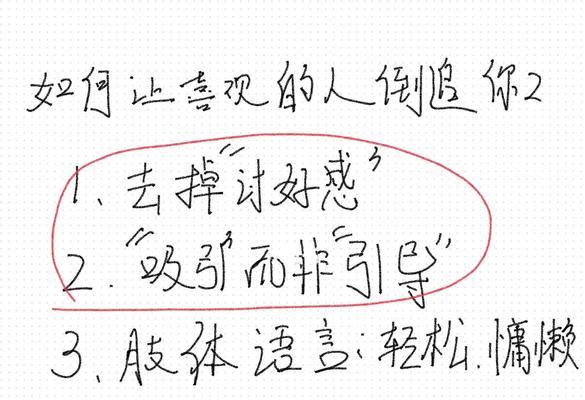 如何让喜欢的人倒追你2
1、去掉"讨好感"
2."吸引"而非"引导"
3、肢体语言:轻松.慵懒